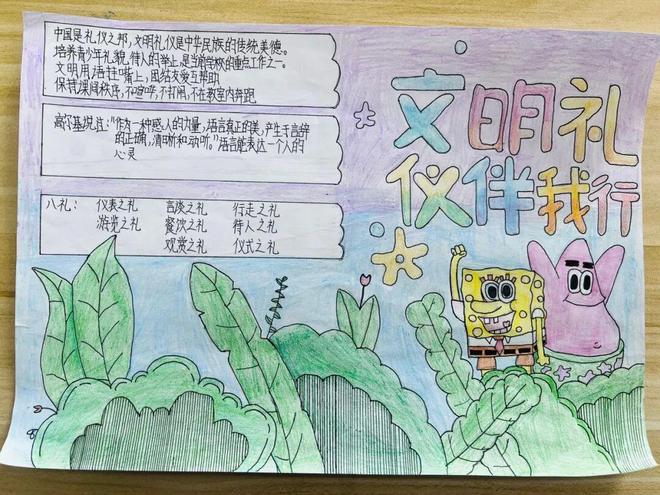 中国是礼仪之邦，文明礼仪是中华民族的传统美德。
培养青少年礼貌，待人的举止，是当前学校的重点工作之一。
文明用语挂嘴上，团结友爱互帮助
保持课间秩序，不喧哗，不打闹，不在教室内奔跑
高尔基说过："作为一种感人的力量，语言真正的美，产生于言辞
的正确，清晰和动听。"语言能表达一个人的
心灵
八礼： 仪表之礼 言谈之礼 行走之礼
游览之礼 餐饮之礼 待人之礼
观赏之礼 仪式之礼
文明礼
仪伴我行